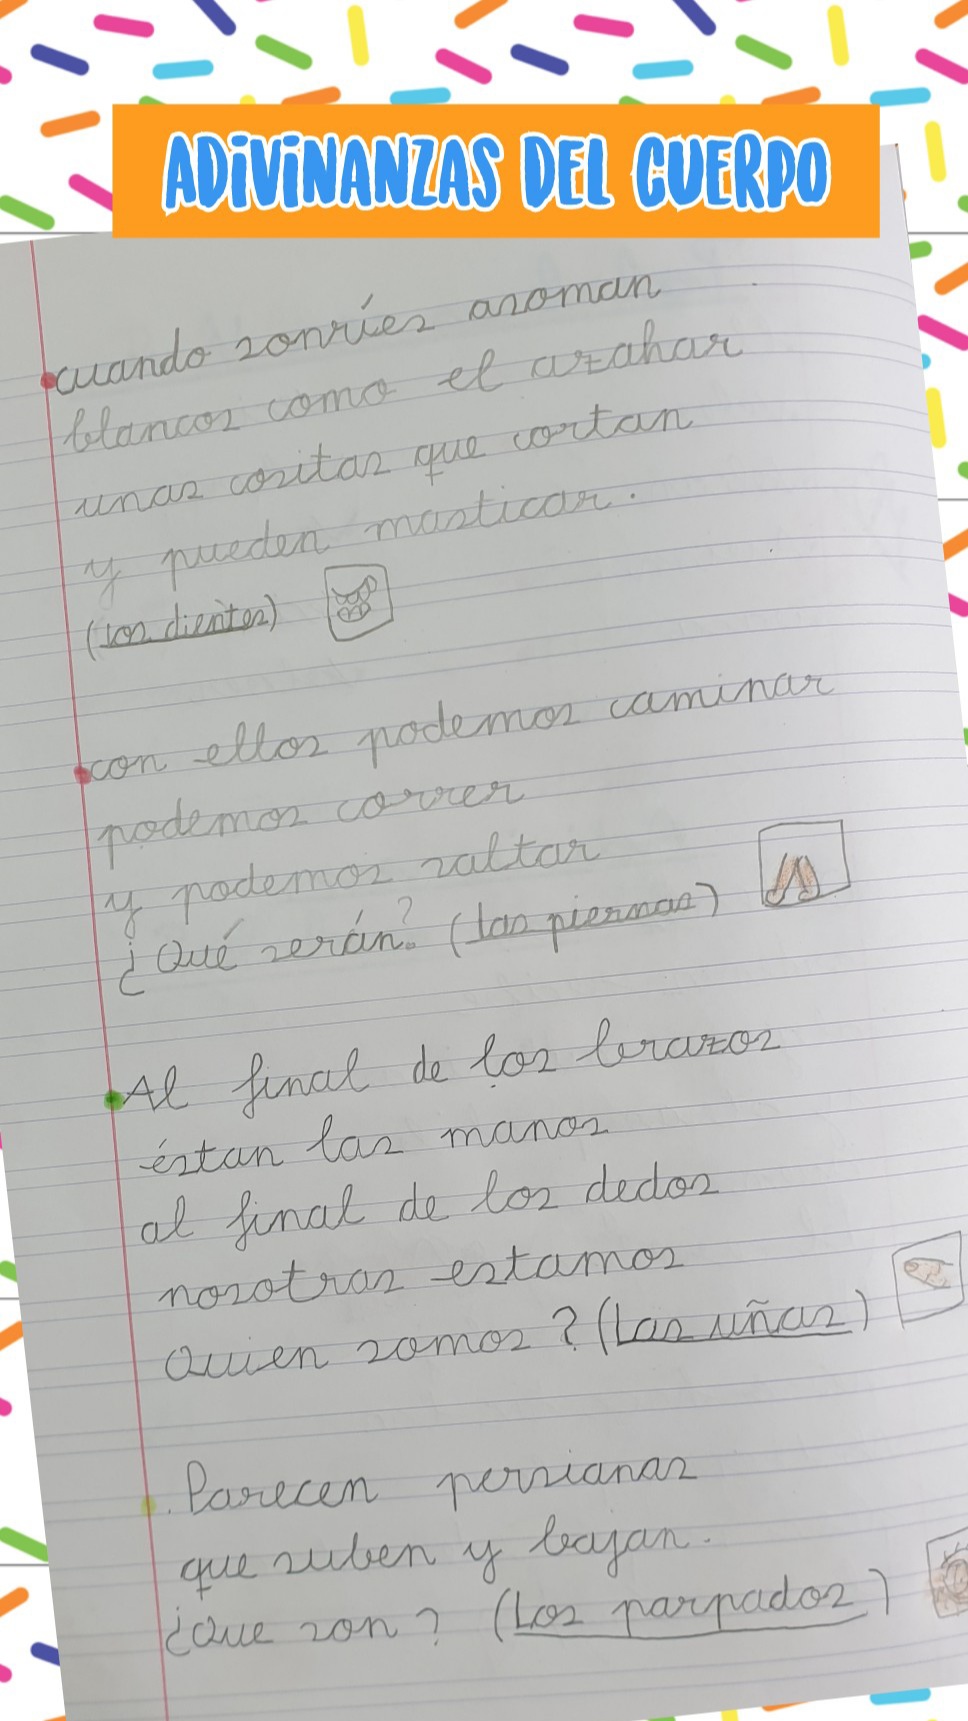 ADIVINANZAS DEL CUERPO
cuando sonríes asoman
blancos como el azahar
unas cositas que cortan
y pueden masticar.
(Los dientes)
con ellos podemos caminar
podemos correr
y podemos saltar
¿Qué serán? (las piernas)
Al final de los brazos
éstan las manos
al final de los dedos
nosotras estamos
Quien somos? (Las uñas)
Parecen persianas
que suben y bajan.
¿Que son? (Los parpados)